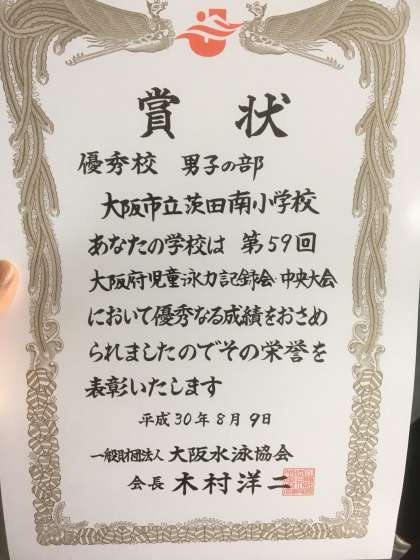 賞状
優秀校 男子の部
大阪市立茨田南小学校
あなたの学校は 第59回
大阪府児童泳力記録会・中央大会
において優秀なる成績をおさめ
られましたのでその栄誉を
表彰いたします
平成30年8月9日
一般財団法人 大阪水泳協会
会長 木村洋二